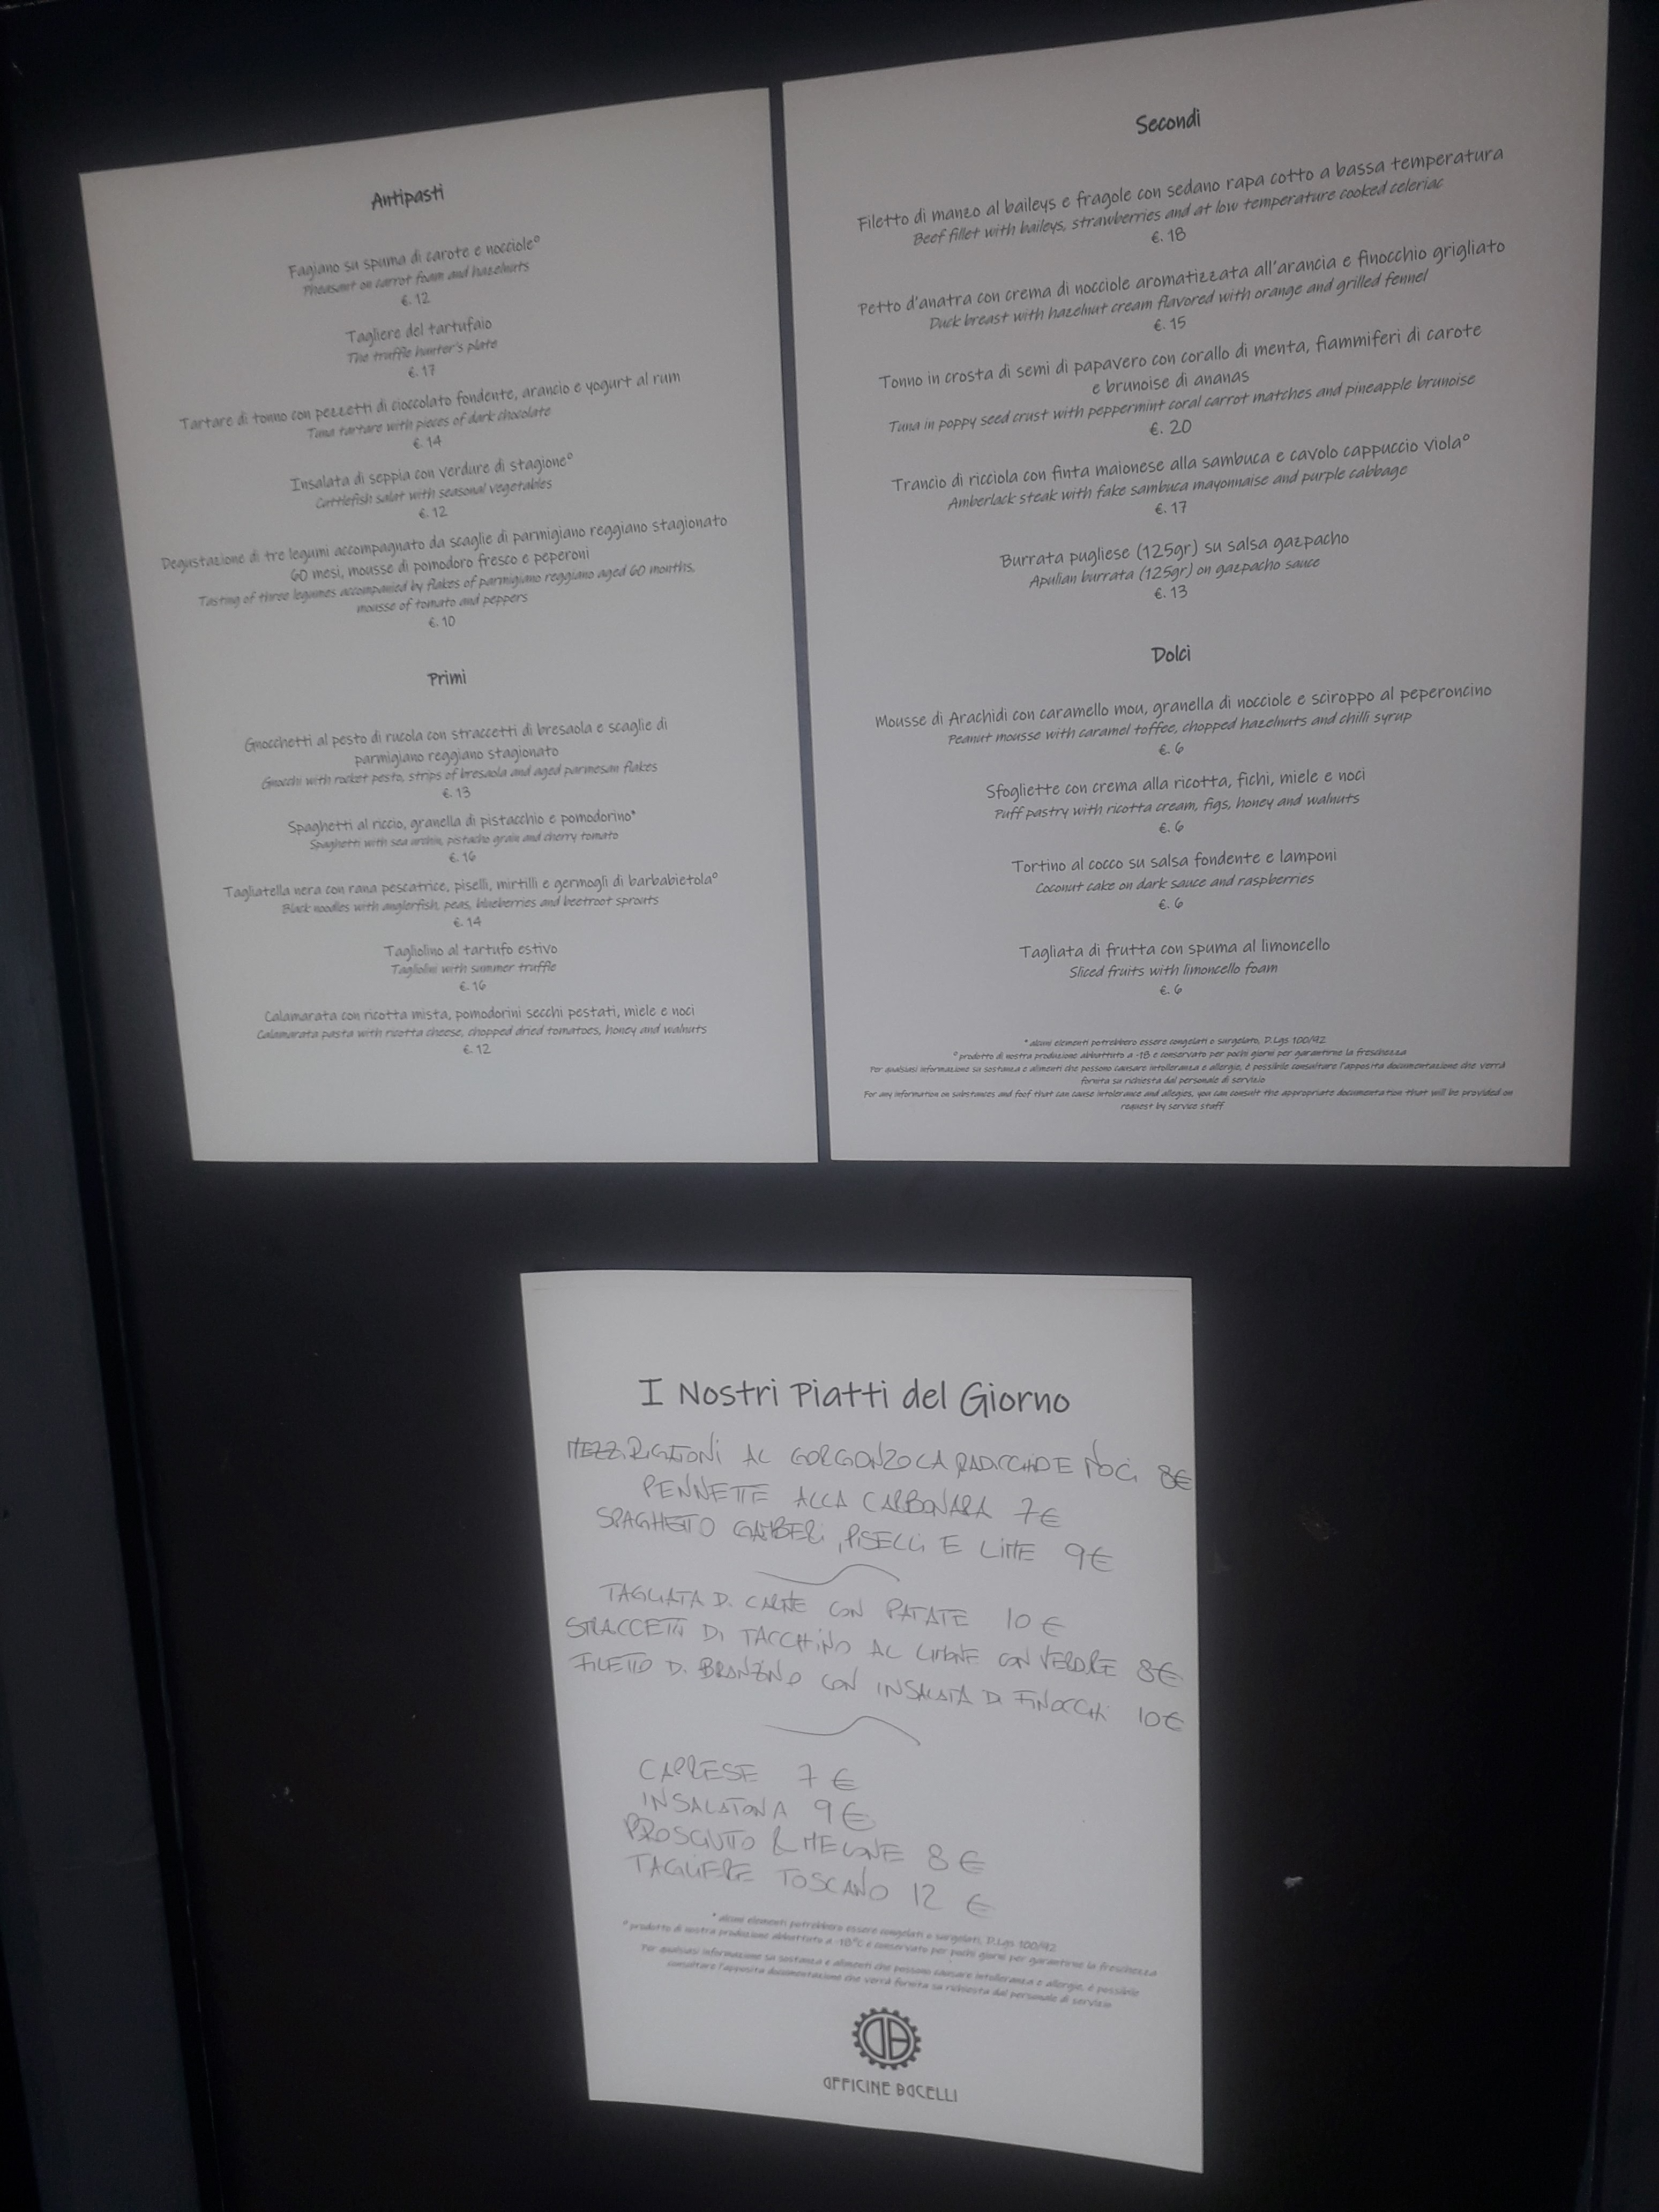 Antipasti
Fagiano su spuma di carote e nocciole°
Pheasant on carrot foam and hazelnuts
€. 12
Tagliere del tartufaio
The truffle hunter's plate
€. 17
Tartare di tonno con pezzetti di cioccolato fondente, arancio e yogurt al rum
Tuna tartare with pieces of dark chocolate
€. 14
Insalata di seppia con verdure di stagione°
Cuttlefish salat with seasonal vegetables
€. 12
Degustazione di tre legumi accompagnato da scaglie di parmigiano reggiano stagionato
60 mesi, mousse di pomodoro fresco e peperoni
Tasting of three legumes accompanied by flakes of parmigiano reggiano aged 60 months,
mousse of tomato and peppers
€. 10
Primi
Gnocchetti al pesto di rucola con straccetti di bresaola e scaglie di
parmigiano reggiano stagionato
Gnocchi with rocket pesto, strips of bresaola and aged parmesan flakes
€. 13
Spaghetti al riccio, granella di pistacchio e pomodorino*
Spaghetti with sea urchin, pistacho grain and cherry tomato
€. 16
Tagliatella nera con rana pescatrice, piselli, mirtilli e germogli di barbabietola°
Black noodles with anglerfish, peas, blueberries and beetroot sprouts
€. 14
Tagliolino al tartufo estivo
Tagliolini with summer truffle
€. 16
Calamarata con ricotta mista, pomodorini secchi pestati, miele e noci
Calamarata pasta with ricotta cheese, chopped dried tomatoes, honey and walnuts
€. 12
Secondi
Filetto di manzo al baileys e fragole con sedano rapa cotto a bassa temperatura
Beef fillet with baileys, strawberries and at low temperature cooked celeriac
€. 18
Petto d'anatra con crema di nocciole aromatizzata all'arancia e finocchio grigliato
Duck breast with hazelnut cream flavored with orange and grilled fennel
€. 15
Tonno in crosta di semi di papavero con corallo di menta, fiammiferi di carote
e brunoise di ananas
Tuna in poppy seed crust with peppermint coral carrot matches and pineapple brunoise
€. 20
Trancio di ricciola con finta maionese alla sambuca e cavolo cappuccio viola°
Amberlack steak with fake sambuca mayonnaise and purple cabbage
€. 17
Burrata pugliese (125gr) su salsa gazpacho
Apulian burrata (125gr) on gazpacho sauce
€. 13
Dolci
Mousse di Arachidi con caramello mou, granella di nocciole e sciroppo al peperoncino
Peanut mousse with caramel toffee, chopped hazelnuts and chilli syrup
€. 6
Sfogliette con crema alla ricotta, fichi, miele e noci
Puff pastry with ricotta cream, figs, honey and walnuts
€. 6
Tortino al cocco su salsa fondente e lamponi
Coconut cake on dark sauce and raspberries
€. 6
Tagliata di frutta con spuma al limoncello
Sliced fruits with limoncello foam
€. 6
* alcuni elementi potrebbero essere congelati o surgelato, D.Lgs 100/92
° prodotto di nostra produzione abbattuto a -18 e conservato per pochi giorni per garantirne la freschezza
Per qualsiasi informazione su sostanza e alimenti che possono causare intolleranza e allergie, è possibile consultare l'apposita documentazione che verrà
fornita su richiesta dal personale di servizio
For any information on substances and foof that can cause intolerance and allegies, you can consult the appropriate documentation that will be provided on
request by service staff
I Nostri Piatti del Giorno
MEZZI RIGATONI AL GORGONZOLA RADICCHIO E NOCI 8€
PENNETTE ALLA CARBONARA 7€
SPAGHETTO GAMBERI, PISELLI E LIME 9€
TAGLIATA DI CARNE CON PATATE 10€
STRACCETTI DI TACCHINO AL LIMONE CON VERDURE 8€
FILETTO DI BRANZINO CON INSALATA DI FINOCCHI 10€
CAPRESE 7€
INSALATONA 9€
PROSCIUTTO & MELONE 8€
TAGLIERE TOSCANO 12 €
* alcuni elementi potrebbero essere congelati o surgelati, D.Lgs 100/92
° prodotto di nostra produzione abbattuto a -18°C e conservato per pochi giorni per garantirne la freschezza
Per qualsiasi informazione su sostanza e alimenti che possono causare intolleranza e allergie, è possibile
consultare l'apposita documentazione che verrà fornita su richiesta dal personale di servizio
OB
OFFICINE BOCELLI